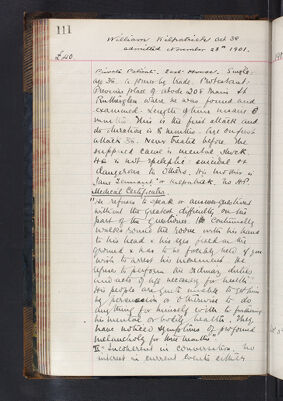 111
William Kilpatrick aet 38
£40.
admitted November 28th 1901.
Private Patient. East House. Single.
aet 38. a House by trade. Protestant.
Previous place of abode 208 Main St
Rutherglen where he was found and
examined. Length of time insane 8
months. This is the first attack and
its duration is 8 months. Age on first
attack 38. Never treated before. The
supposed cause is mental shock.
He is not epileptic suicidal or
dangerous to others. His mother is
Jane Tennant or Kilpatrick. No H.P.
Medical Certificates
I "He refuses to speak or answer questions
without the greatest difficulty on the
part of the questioner. He continually
walks round the room with his hand
to his head & his eyes fixed on the
ground & has to be forcibly held if you
wish to arrest his movement. He
refuses to perform the ordinary duties
and acts of life necessary for health.
His people are quite unable to get him
by persuasion or otherwise to do
anything for himself with to
his mental or bodily health. They
have noticed symptoms of profound
melancholy for three months"
II "Incoherent in conversation, no
interest in current events either